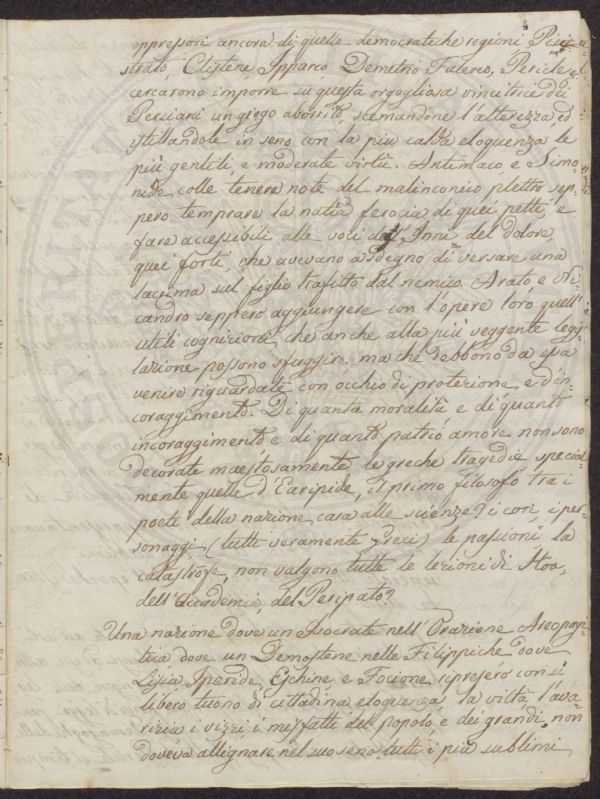 oppressori ancora di quelle democratiche regioni Pisi-
strato, Clistene Ipparco Demetrio Falereo, Pericle
cercarono imporre su questa orgogliosa vincitrice dei
Persiani un giogo aborrito, scemandone l'alterezza ed
istillandole in seno con la piu calda eloquenza le
più gentili, e moderate virtù. Antimaco, e Simo-
nide colle tenere note del malinconico plettro sep-
pero temprare la natia ferocia di quei petti, e
fare accessibili alle voci degl'Inni del dolore
quei forti, che avevano a sdegno di versare una
lacrima sul figlio trafitto dal nemico. Arato e Ni-
candro seppero aggiungere con l'opere loro quell'
utili cognizioni, che anche alla più veggente legi-
lazione possono sfuggire, ma che debbono da essa
venire riguardate con occhio di protezione, e d'in-
coraggimento. Di quanta moralità e di quanto
incoraggimento e di quanto patrio amore non sono
decorate maestosamente le greche tragedie special-
mente quelle d'Euripide, il primo filosofo tra i
poeti della nazione cara alle scienze? i cori, i per-
sonaggi (tutti veramente Greci) le passioni, la
catastrofe, non valgono tutte le lezioni di Stoa,
dell'Accademia, del Peripato?
Una nazione dove un Isocrate nell'Orazione Areopagi-
tica dove un Demostene nelle Filippiche dove
Lisia Iperide, Eschine e Focione ripresero con sì
libero tuono di cittadina eloquenza la viltà l'ava-
rizia i vizzi i misfatti del popolo e dei grandi, non
doveva allignare nel suo seno tutti i più sublimi